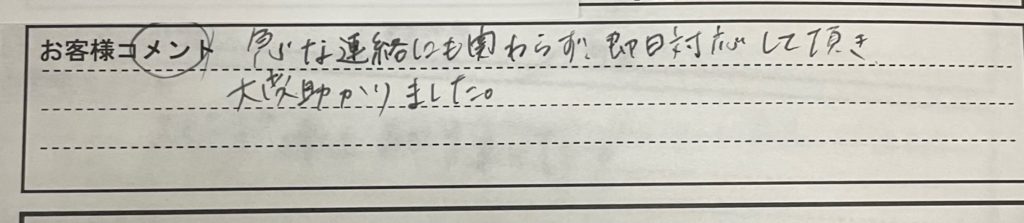 お客様コメント 急な連絡にも関わらず、即日対応して頂き
大変助かりました。